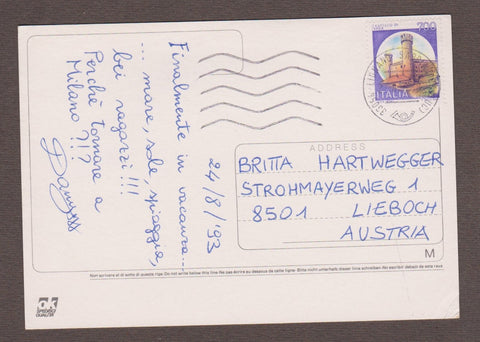 Finalmente in vacanza...
... mare, sole, spiaggia,
bei ragazzi!!!
Perchè tornare a
Milano?!?
24/8/'93
700
ITALIA
ADDRESS
BRITTA HARTWEGGER
STROHMAYERWEG 1
8501 LIEBOCH
AUSTRIA
M
Non scrivere al di sotto di questa riga · Do not write below this line · Ne pas écrire au dessous de cette ligne · Bitte nicht unterhalb dieser linie schreiben · No escribir debajo de esta raya
OK